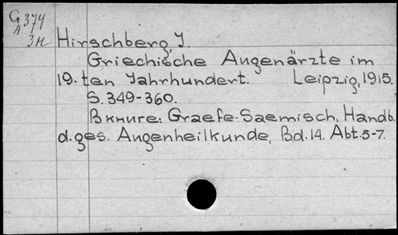 G 374
A 3H
Hirschberg, J.
Griechische Augenärzte im
19-ten Jahrhundert. Leipzig, 1915.
S. 349-360.
Вкниге: Graefe-Saemisch, Handb.
d. ges. Augenheilkunde, Bd. 14. Abt. 5-7.